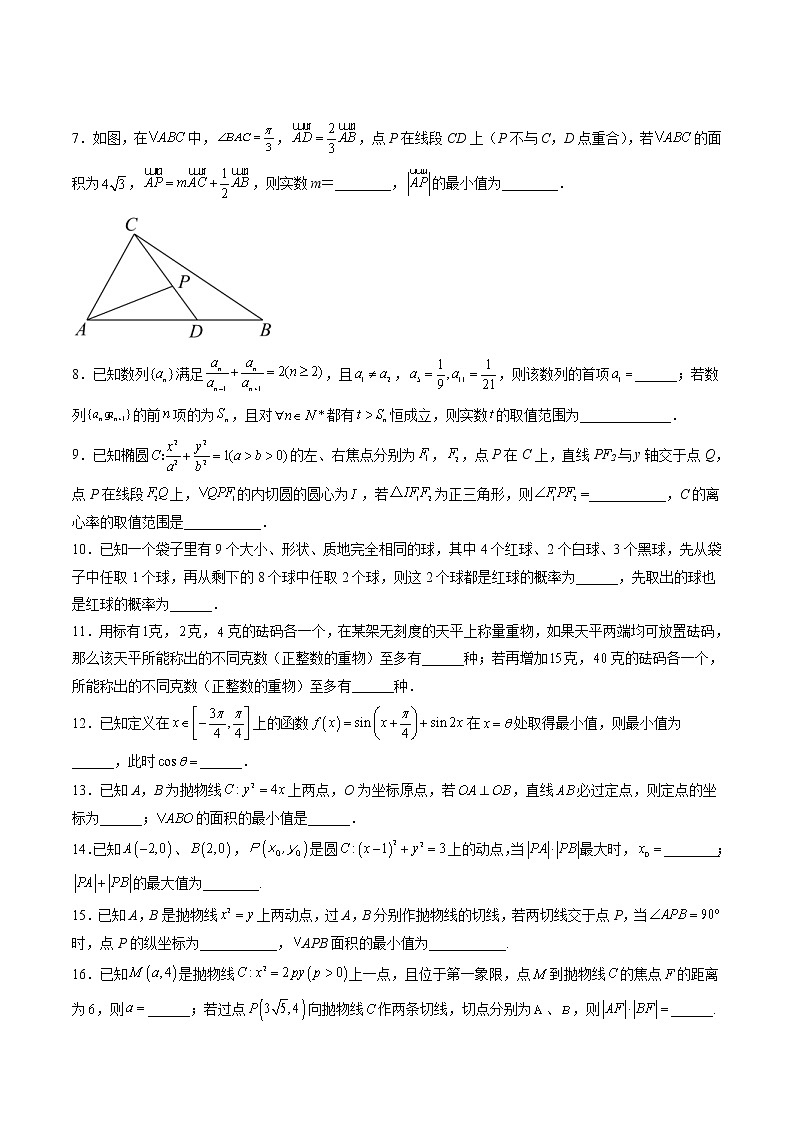 7．如图，在VABC中，∠BAC = π/3，AD = 2/3 AB，点P在线段CD上（P不与C，D点重合），若VABC的面
积为4√3，AP = mAC + 1/2 AB，则实数m＝________，|AP|的最小值为________．
C
P
A D B
8．已知数列{aₙ}满足 aₙ/aₙ₋₁ + aₙ/aₙ₊₁ = 2(n ≥ 2)，且a₁ ≠ a₂，a₅ = 1/9, a₁₁ = 1/21，则该数列的首项a₁ = ______；若数
列{aₙgaₙ₊₁}的前n项的为Sₙ，且对∀n∈N*都有t > Sₙ恒成立，则实数t的取值范围为_____________．
9．已知椭圆C: x²/a² + y²/b² = 1(a > b > 0)的左、右焦点分别为F₁，F₂，点P在C上，直线PF₂与y轴交于点Q，
点P在线段F₂Q上，VQPF₁的内切圆的圆心为I，若△IF₁F₂为正三角形，则∠F₁PF₂ =___________，C的离
心率的取值范围是___________．
10．已知一个袋子里有9个大小、形状、质地完全相同的球，其中4个红球、2个白球、3个黑球，先从袋
子中任取1个球，再从剩下的8个球中任取2个球，则这2个球都是红球的概率为______，先取出的球也
是红球的概率为______．
11．用标有1克，2克，4克的砝码各一个，在某架无刻度的天平上称量重物，如果天平两端均可放置砝码，
那么该天平所能称出的不同克数（正整数的重物）至多有______种；若再增加15克，40克的砝码各一个，
所能称出的不同克数（正整数的重物）至多有______种．
12．已知定义在x∈[−3π/4, π/4]上的函数f(x) = sin(x + π/4) + sin 2x在x = θ处取得最小值，则最小值为
______，此时cosθ = ______．
13．已知A，B为抛物线C : y² = 4x上两点，O为坐标原点，若OA⊥OB，直线AB必过定点，则定点的坐
标为______；VABO的面积的最小值是______．
14.已知A(−2,0)、B(2,0)，P(x₀, y₀)是圆C : (x−1)² + y² = 3上的动点，当|PA|·|PB|最大时，x₀ = ________；
|PA| + |PB|的最大值为________.
15．已知A，B是抛物线x² = y上两动点，过A，B分别作抛物线的切线，若两切线交于点P，当∠APB = 90°
时，点P的纵坐标为___________，VAPB面积的最小值为___________.
16．已知M(a,4)是抛物线C : x² = 2py(p > 0)上一点，且位于第一象限，点M到抛物线C的焦点F的距离
为6，则a = ______；若过点P(3√5,4)向抛物线C作两条切线，切点分别为A、B，则|AF|·|BF| = ______.